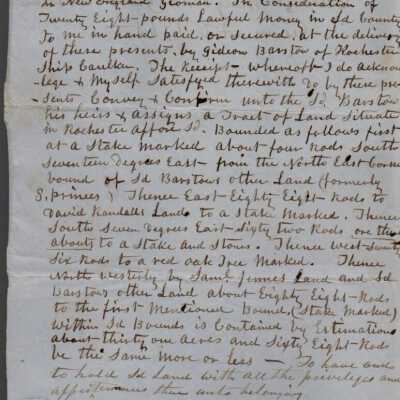 in New England Yeoman. In Consideration of
Twenty Eight pounds Lawful Money in sd County
To me in hand paid, or secured, at the delivery
of these presents, by Gideon Barstow of Rochester
Ship Caulker. The Receipt whereoff I do acknow
lege & Myself Satisfyed therewith & by these pre
sents, Convey & Confirm unto the Sd Barstow
his heirs & assigns, a Tract of Land Situate
in Rochester Affore Sd. Bounded as follows first
at a Stake Marked about four Rods South
Seventeen Degrees East from the North East Corner
bound of Sd Barstows other Land (formerly
S. princes) Thence East Eighty Eight Rods to
David Randalls Land to a Stake Marked. Thence
South Seven Degrees East Sixty two Rods, ore there
abouts to a Stake and Stones. Thence West South
Six Rods to a red oak Tree Marked. Thence
North Westerly by Saml. Jennes Land and Sd
Barstows other Land about Eighty Eight Rods
to the first Mentioned Bound, (Stake Marked)
Within Sd Bounds is Contained by Estimations
about thirty one Acres and Sixty Eight Rods
be the Same More or less — To have and
to hold Sd Land with all the previleges and
appurtenances there unto belonging